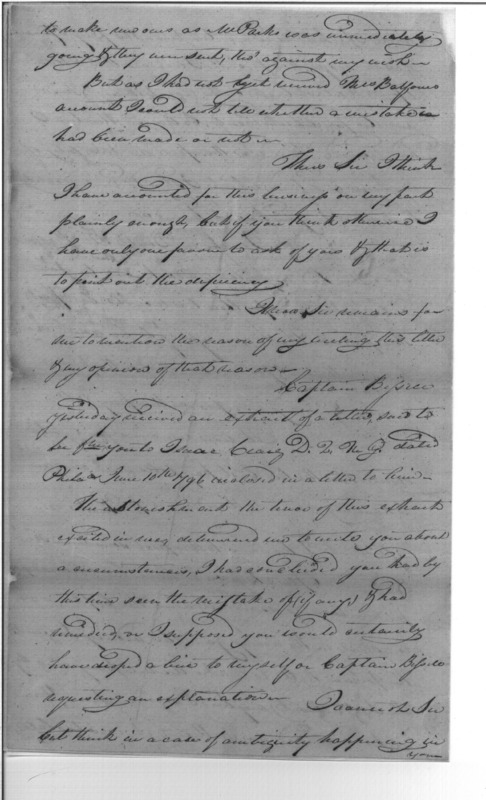 to make use ours as Mr Parks was immediately
going & they were sent, tho' against my wish
But as I had not yet viewed Thos Balfours
amount I could not tell whether a mistake
had been made or not
Thus Sir I think
I have accounted for this business on my part
plainly enough, but if you think otherwise I
have only one favour to ask of you & that is
to point out the deficiency
Sir remains for
me to mention the reason of my writing this letter
& my opinion of that reason
Captain Bissell
yesterday received an extract of a letter sent to
be from you to Isaac Craig D. Q. M. G. dated
Phila June 10th 1796 inclosed in a letter to him
The astonishment the tenor of this extract
excited in me, determined me to write you about
a circumstance, I had concluded you had by
this time seen the mistake of (if any) & had
remedied, or I supposed you would certainly
have droped a line to myself or Captain Bissell
requesting an explanation
I cannot Sir
but think in a case of ambiguity happening in